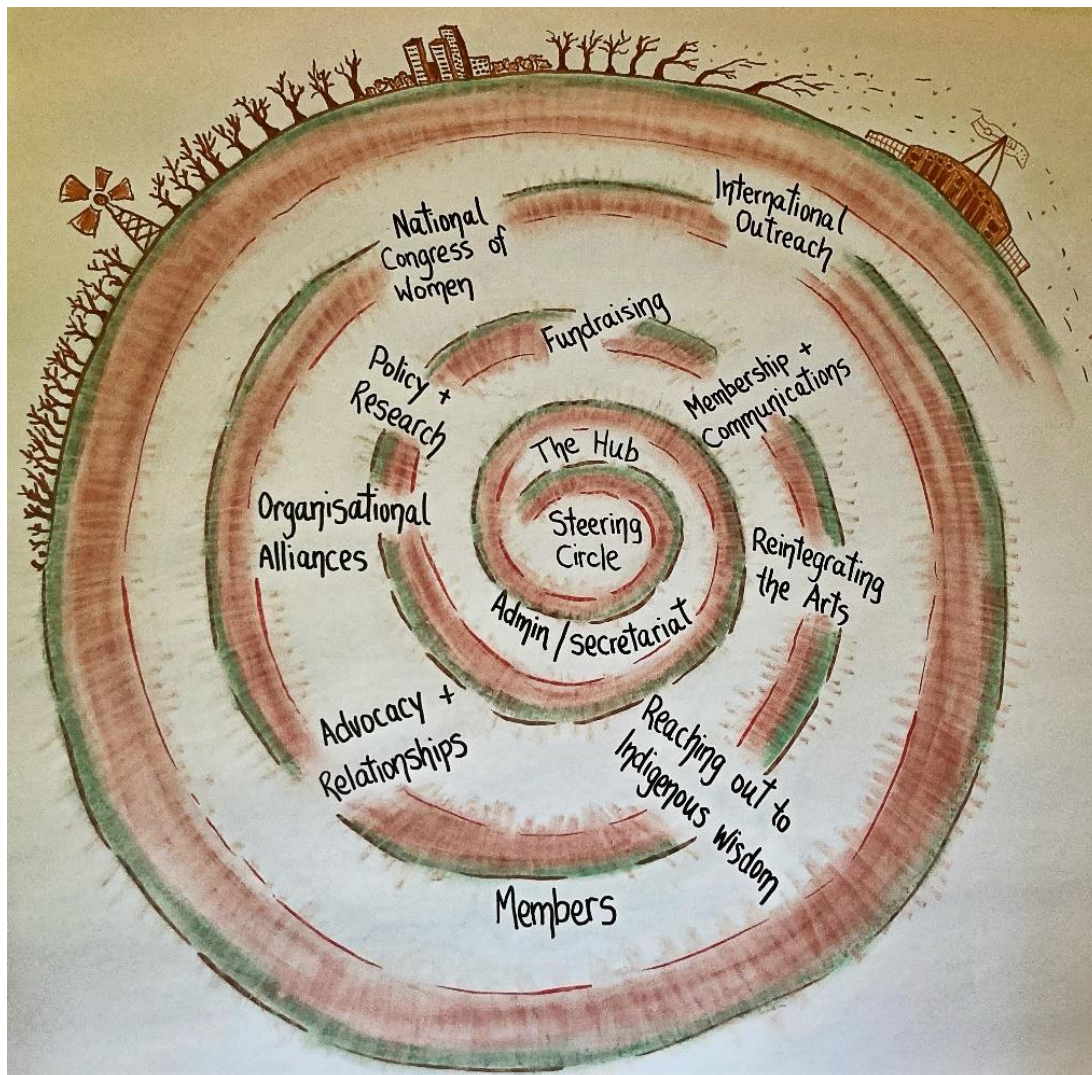 National
Congress of
Women
International
Outreach
Fundraising
Policy +
Research
Membership +
Communications
The Hub
Organisational
Alliances
Steering
Circle
Reintegrating
the Arts
Admin/secretariat
Advocacy +
Relationships
Reaching out to
Indigenous wisdom
Members